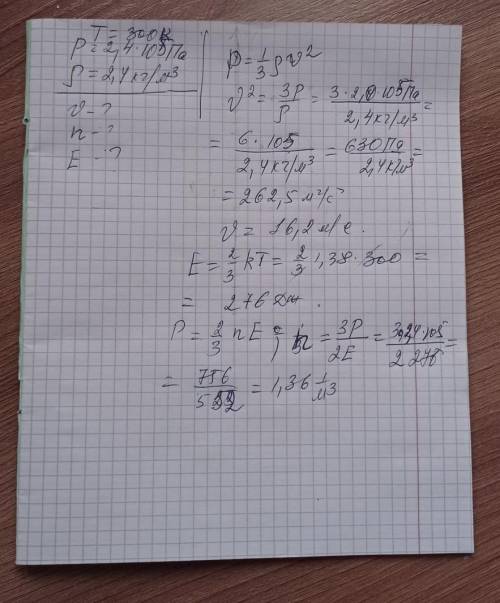 T = 300K
P = 2,4·10⁵Па
ρ = 2,4кг/м³
v - ?
n - ?
E - ?
P = 1/3 ρv²
v² = 3P/ρ = 3·2,0·10⁵Па / 2,4кг/м³ =
= 6·105 / 2,4кг/м³ = 630Па / 2,4кг/м³ =
= 262,5 м²/с²
v = 16,2 м/с.
E = 2/3 kT = 2/3 1,38·300 =
= 276 Дж.
P = 2/3 nE ; n = 3P/2E = 3·2,4·105 / 2 276 =
= 756/552 = 1,36 1/м3